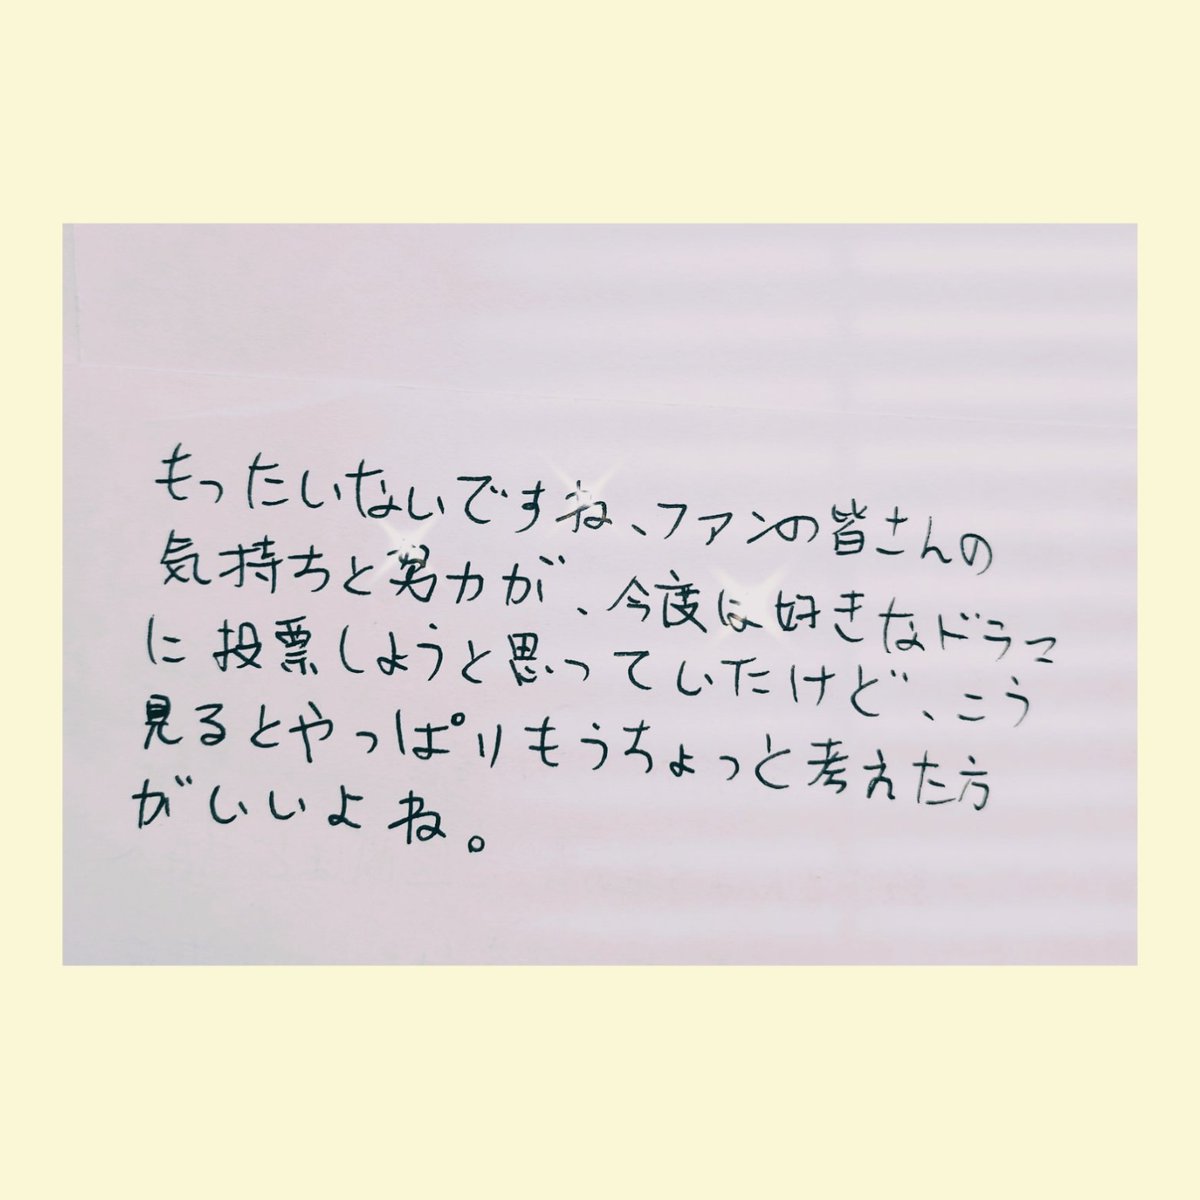 もったいないですね、ファンの皆さんの
気持ちと努力が、今度は好きなドラマ
に投票しようと思っていたけど、こう
見るとやっぱりもうちょっと考えた方
がいいよね。